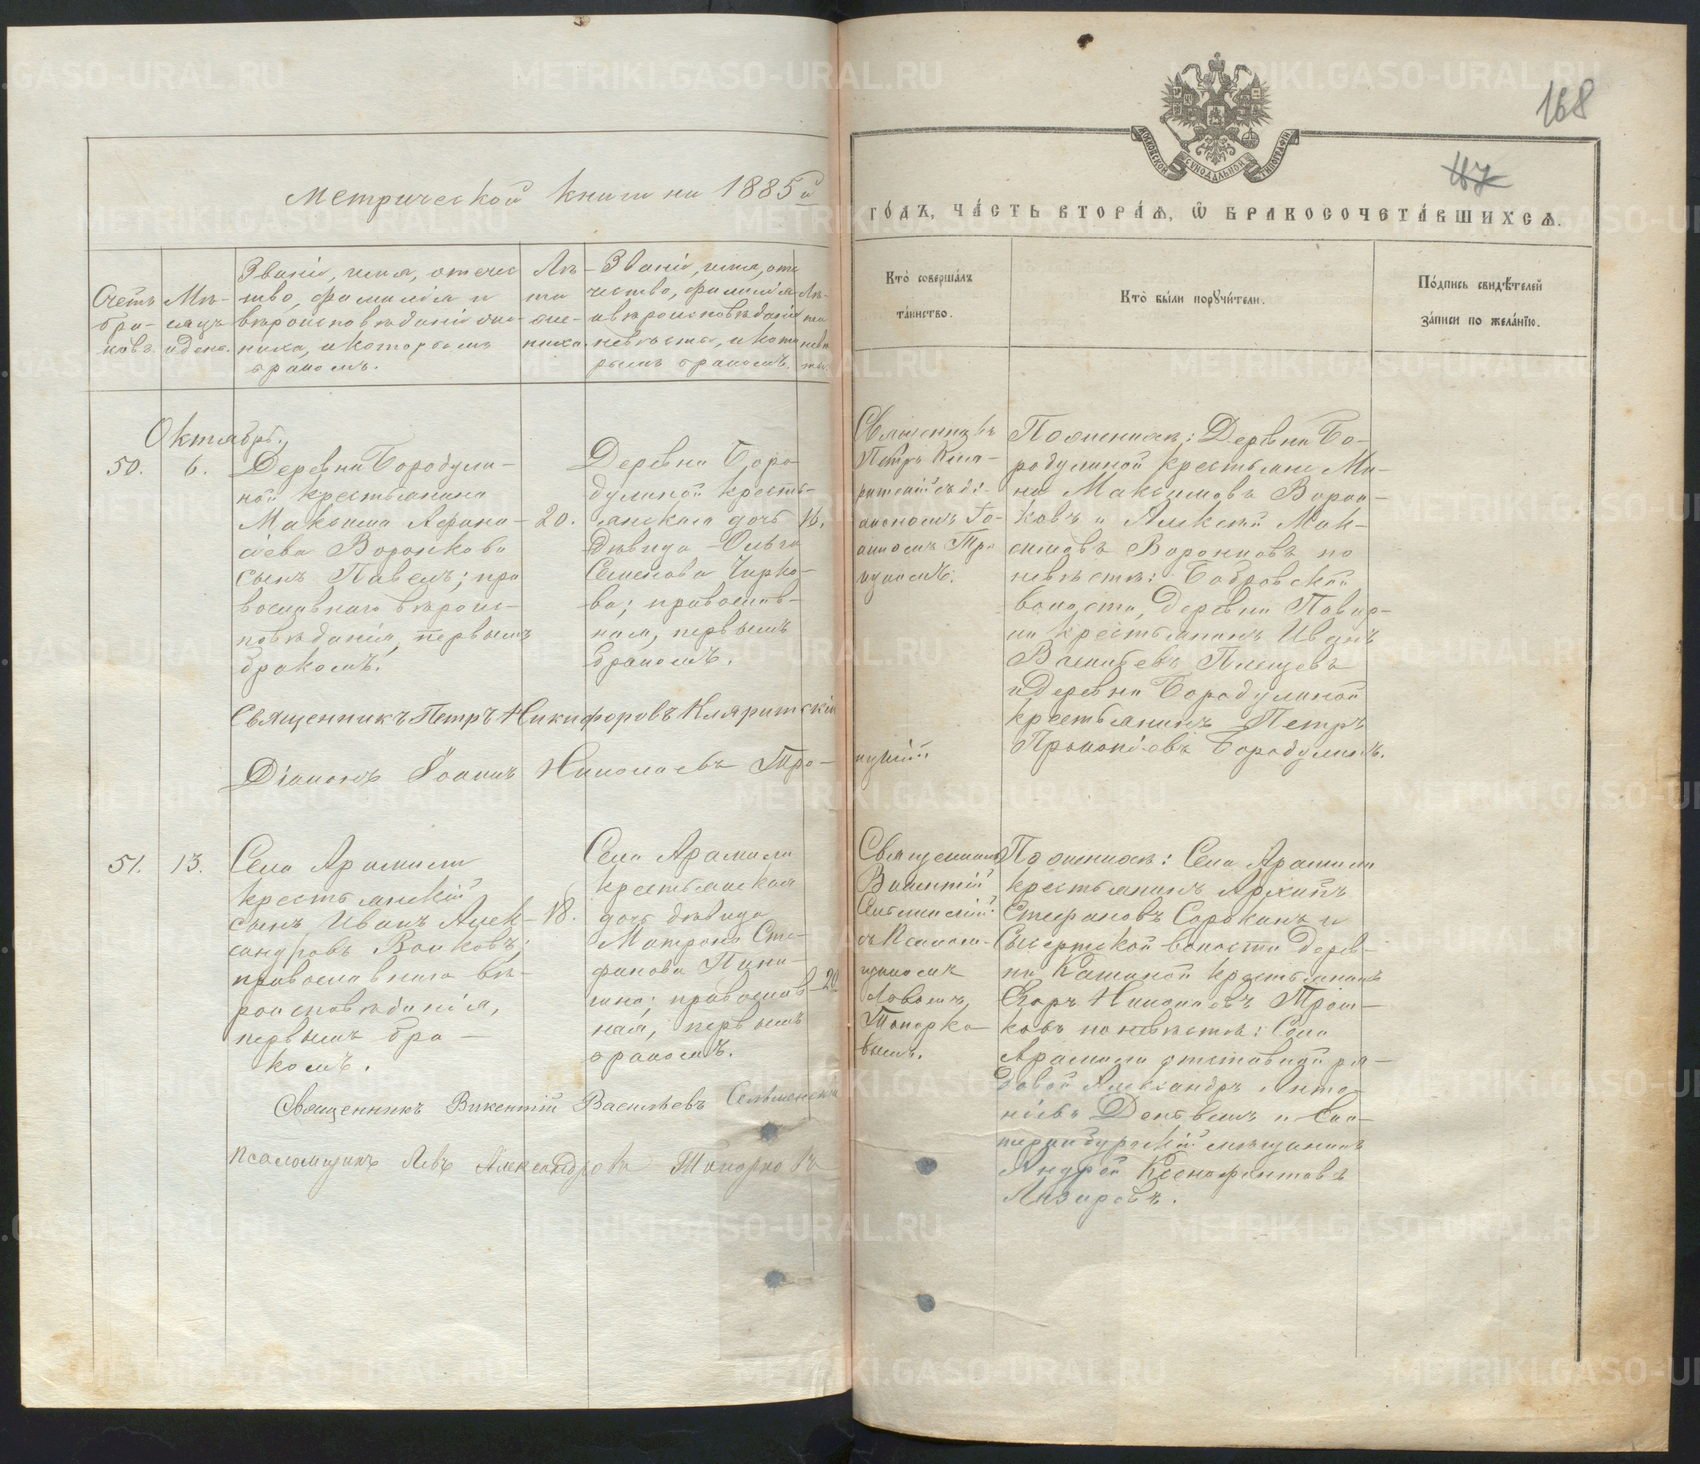 168
117
Метрической книги на 1885й
го́дъ, ча́сть втора́ѧ, ѡ҆ бракосочета́вшихсѧ.
Счетъ бра-ковъ.
Мѣ-сяцъ и день.
Званіе, имя, отече-
ство, фамилія и
вѣроисповѣданіе же-
ниха, и которымъ
бракомъ.
Лѣ-
та
же-
ниха.
Званіе, имя, оте
чество, фамилія
и вѣроисповѣданіе
невѣсты, и кото
рымъ бракомъ.
Лѣ-
та
невѣ
сты.
Кто̀ соверша́лъ
та́инство.
Кто̀ бы́ли порꙋчи́тели.
По́дпись свидѣ́телей
за́писи по жела́нїю.
Октябрь.
50. 6.
Деревни Бородули-
ной крестьянина
Максима Афана-
сіева Воронкова
сынъ Павелъ; пра
вославнаго вѣроис-
повѣданія, первымъ
бракомъ.
20.
Деревни Боро
дулиной кресть-
янская дочь
дѣвица Ольга
Семенова Чирко-
ва; православ-
ная, первымъ
бракомъ.
16.
Священникъ
Петръ Кля-
ритскій съ ді-
акономъ Іо-
анномъ Тро
ицкимъ.
По женихѣ: Деревни Бо-
родулиной крестьяне Ми-
на Максимовъ Ворон-
ковъ и Алексѣй Мак-
симовъ Воронковъ по
невѣстѣ: Бобровской
волости, деревни Повар-
ни крестьянинъ Иванъ
Васильевъ Плещовъ
и Деревни Бородулиной
крестьянинъ Петръ
Прокопіевъ Бородулинъ.
Священникъ Петръ Никифоровъ Кляритскій
Діаконъ Іоаннъ Николаевъ Тро-
ицкій.
51. 13.
Села Арамили
крестьянскій
сынъ Иванъ Алек-
сандровъ Волковъ;
православнаго вѣ-
роисповѣданія,
первымъ бра-
комъ.
18.
Села Арамили
крестьянская
дочь дѣвица
Матрона Сте-
фанова Пани-
на; православ
ная, первымъ
бракомъ.
20
Священникъ
Викентій
Сельменскій
съ Псалом-
щикомъ
Львомъ
Топорко-
вымъ.
По женихѣ: Села Арамили
крестьянинъ Архипъ
Стефановъ Сорокинъ и
Сысертской волости Дерев-
ни Кашиной крестьянинъ
Егоръ Николаевъ Трош-
ковъ по невѣстѣ: Села
Арамили отставной ря-
довой Александръ Анто-
ніевъ и Ека-
теринбургскій мѣщанинъ
Андрей Ксенофонтовъ
Лазаревъ.
Священникъ Викентій Васильевъ Сельменскій
Псаломщикъ Левъ Александровъ Топорковъ